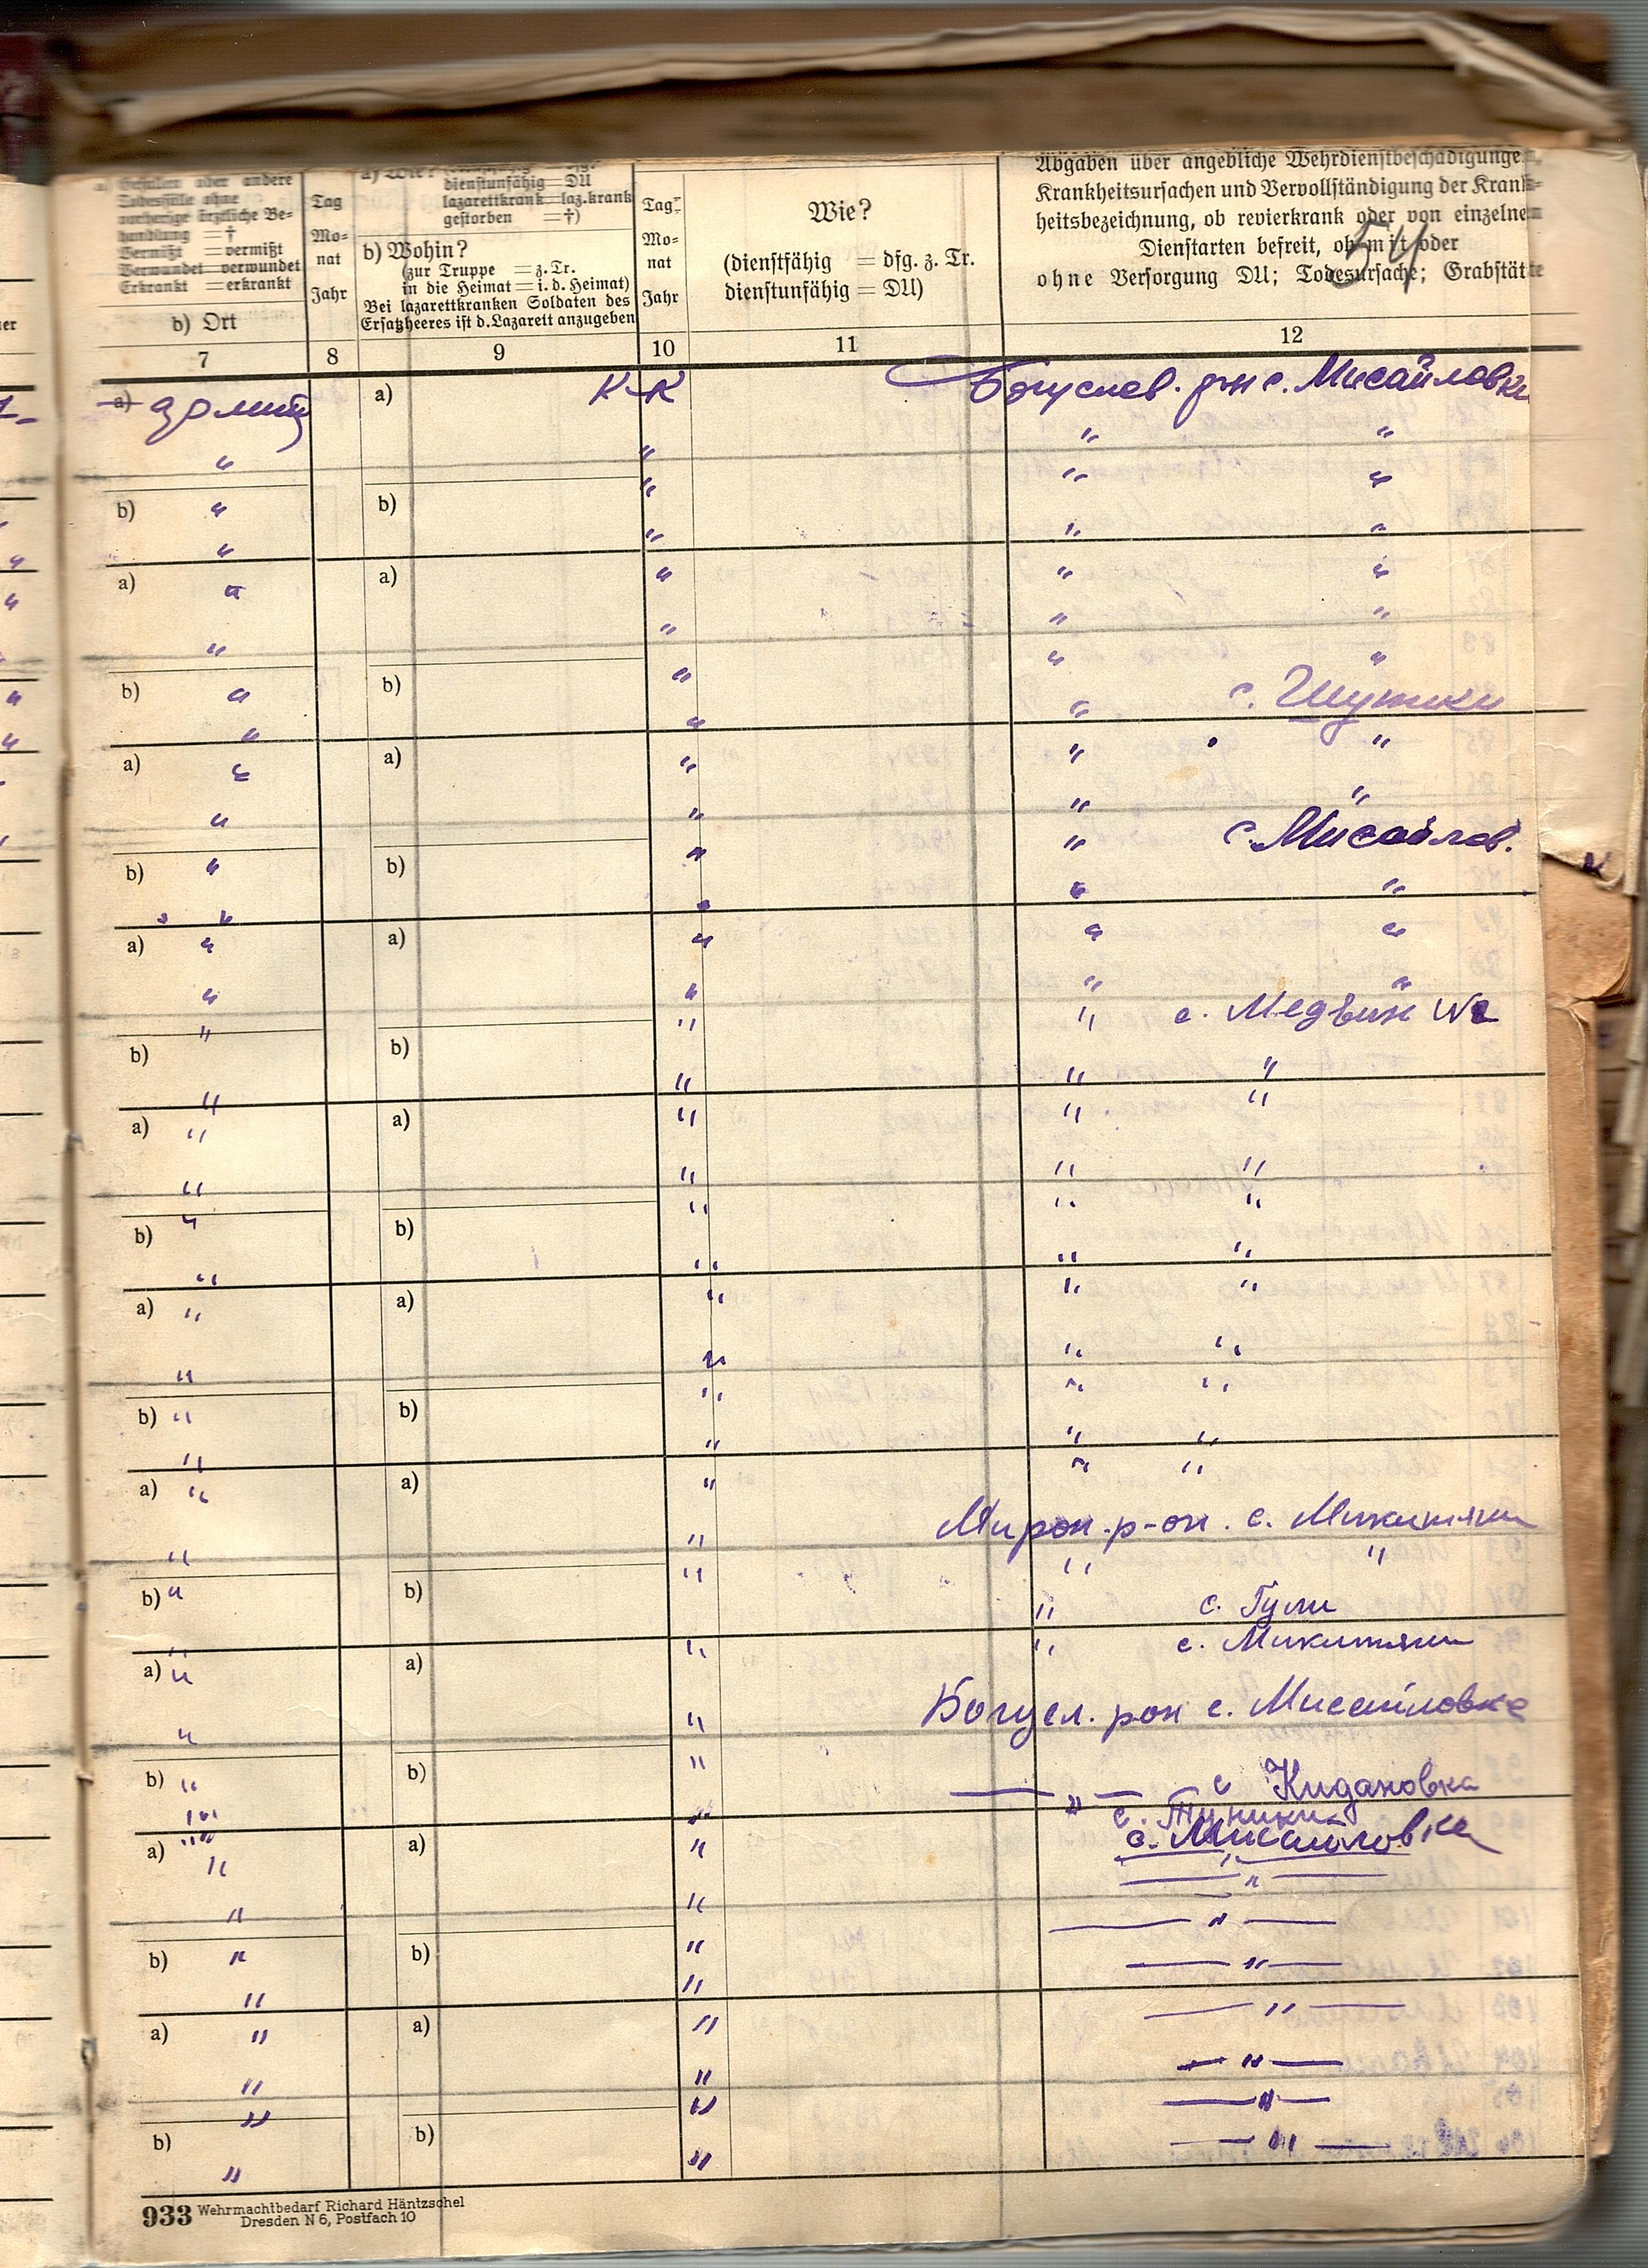 a) Gefallen oder andere
Todesfälle ohne
vorherige ärztliche Be-
handlung = †
Vermißt = vermißt
Verwundet = verwundet
Erkrankt = erkrankt
b) Ort
Tag
Mo-
nat
Jahr
a) Wie?
dienstunfähig = DU
lazarettkrank = laz.krank
gestorben = †)
b) Wohin?
(zur Truppe = z. Tr.
in die Heimat = i. d. Heimat)
Bei lazarettkranken Soldaten des
Ersatzheeres ist d. Lazarett anzugeben
Tag
Mo-
nat
Jahr
Wie?
(dienstfähig = dfg. z. Tr.
dienstunfähig = DU)
Abgaben über angebliche Wehrdienstbeschädigungen,
Krankheitsursachen und Vervollständigung der Krank-
heitsbezeichnung, ob revierkrank oder von einzelnen
Dienstarten befreit, ob mit oder
ohne Versorgung DU; Todesursache; Grabstätte
54
7 8 9 10 11 12
a) a) К-К Богуслав. р-н с. Мисайловка
" " " "
" " "
b) " b) " " "
" " "
a) " a) " " "
" " " "
b) " b) " " с. Шутки
" " " "
a) " a) " " "
" " " с. Мисайлов.
b) " b) " " "
" " " "
a) " a) " " "
" " " с. Медвин №2
b) " b) " " "
" " " "
a) " a) " " "
" " " "
b) " b) " " "
" " " "
a) " a) " " "
" " " "
b) " b) " " "
" " " "
a) " a) " Мирон. р-он. с. Микитяни
" " " "
b) " b) " " с. Гули
" " " с. Микитяни
a) " a) " Богусл. рон с. Мисайловка
" "
b) " b) " — " — с Кидановка
" " с. Туники
с. Мисайловка
a) " a) " — " —
" " — " —
b) " b) " — " —
" " — " —
a) " a) " — " —
" " — " —
b) " b) " — " —
" "
933 Wehrmachtbedarf Richard Häntzschel
Dresden N 6, Postfach 10